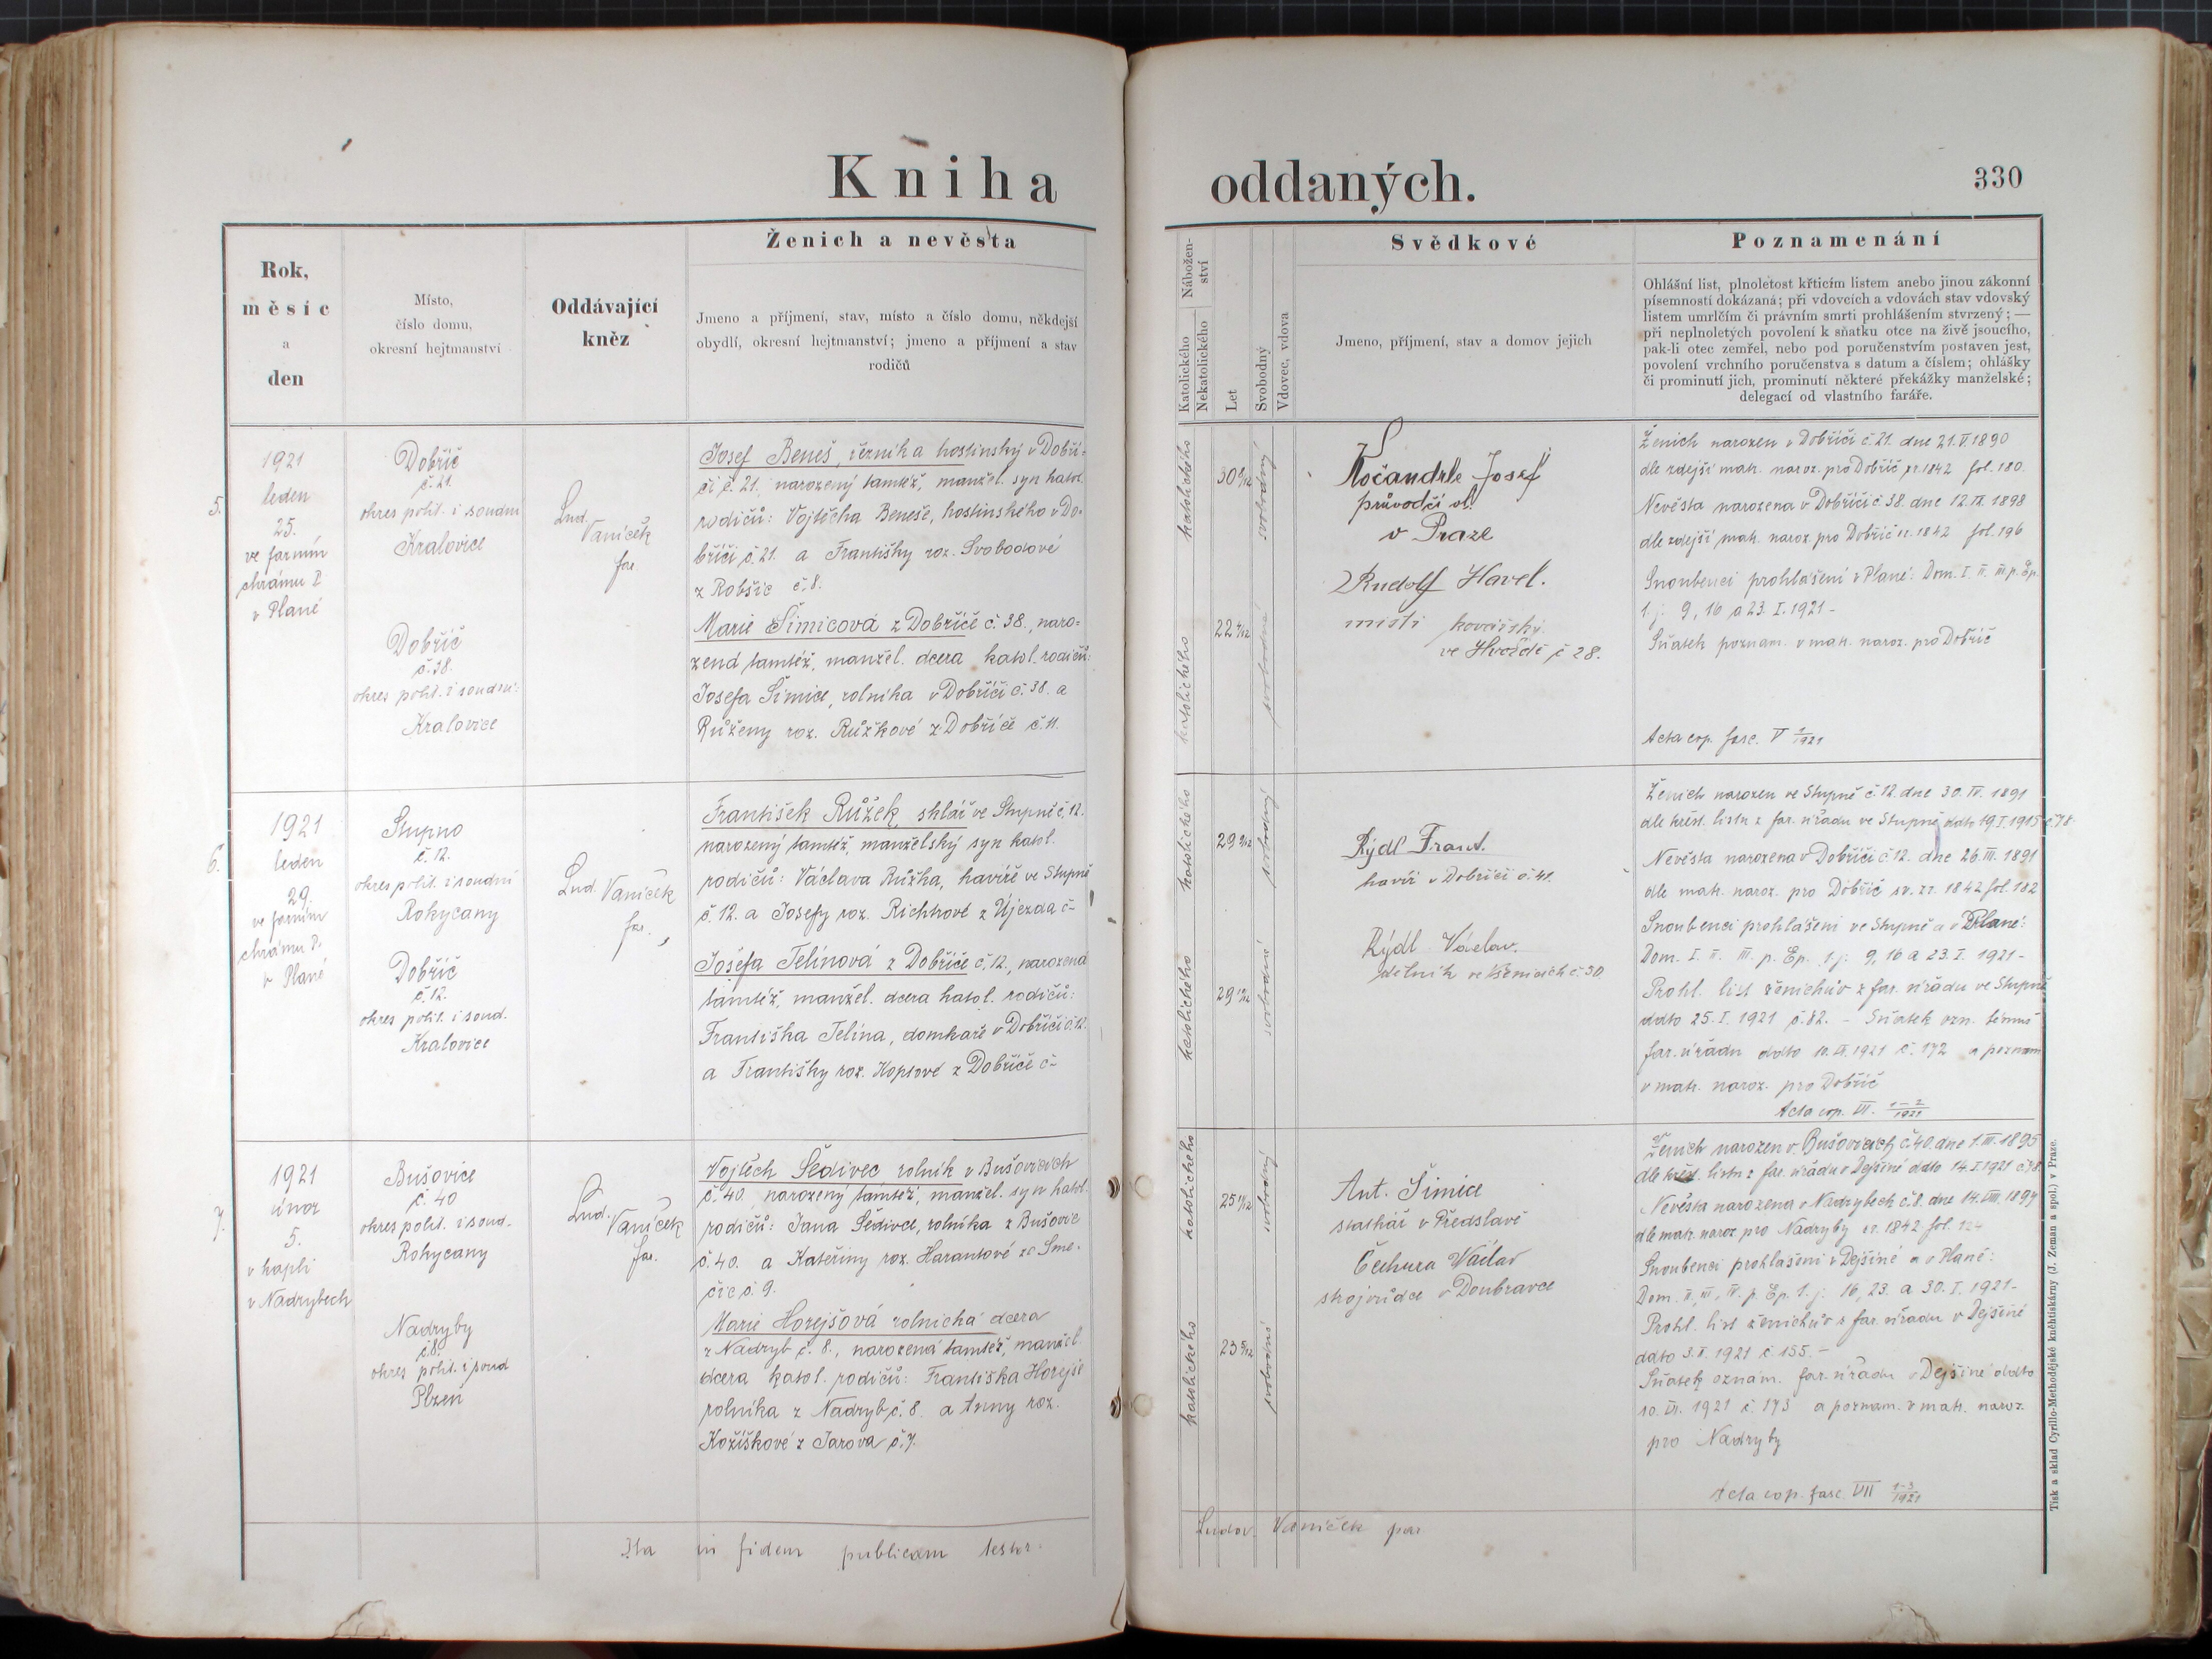 Kniha oddaných.
330
Rok,
měsíc
a
den
Místo,
číslo domu,
okresní hejtmanství
Oddávající
kněz
Ženich a nevěsta
Jmeno a příjmení, stav, místo a číslo domu, někdejší
obydlí, okresní hejtmanství; jmeno a příjmení a stav
rodičů
Nábožen-
ství
Katolického
Nekatolického
Let
Svobodný
Vdovec, vdova
Svědkové
Jmeno, příjmení, stav a domov jejich
Poznamenání
Ohlášní list, plnoletost křticím listem anebo jinou zákonní
písemností dokázaná; při vdovcích a vdovách stav vdovský
listem umrlčím či právním smrti prohlášením stvrzený; —
při neplnoletých povolení k sňatku otce na živě jsoucího,
pak-li otec zemřel, nebo pod poručenstvím postaven jest,
povolení vrchního poručenstva s datum a číslem; ohlášky
či prominutí jich, prominutí některé překážky manželské;
delegací od vlastního faráře.
5.
1921
leden
25.
ve farním
chrámu P.
v Plané
Dobříč
č. 21.
okres polit. i soudní
Kralovice
Dobříč
č. 38.
okres polit. i soudní:
Kralovice
Lud.
Vaníček
far.
Josef Beneš, řezník a hostinský v Dobří-
či č. 21. narozený tamtéž, manžel. syn katol.
rodičů: Vojtěcha Beneše, hostinského v Do-
bříči č. 21. a Františky roz. Svobodové
z Robšic č. 8.
Marie Šimicová z Dobříče č. 38., naro-
zená tamtéž, manžel. dcera katol. rodičů:
Josefa Šimice, rolníka v Dobříči č. 38. a
Růženy roz. Růžkové z Dobříče č. 11.
katolického
30 8/12
svobodný
katolického
22 4/12
svobodná
Kočandrle Josef
průvodčí vl.
v Praze
Rudolf Havel.
mistr kovářský
ve Hvozdě č 28.
Ženich narozen v Dobříči č. 21. dne 21. V. 1890
dle zdejší matr. naroz. pro Dobříč zr. 1842 fol. 180.
Nevěsta narozena v Dobříči č. 38. dne 12. IX. 1898
dle zdejší matr. naroz. pro Dobříč zr. 1842 fol. 196
Snoubenci prohlášeni v Plané: Dom. I. II. III. p. Ep.
t. j. 9, 16 a 23. I. 1921 –
Sňatek poznam. v matr. naroz. pro Dobříč
Acta cop. fasc. V 1/1921
6.
1921
leden
29.
ve farním
chrámu P.
v Plané
Stupno
č. 12.
okres polit. i soudní
Rokycany
Dobříč
č. 12.
okres polit. i soud.
Kralovice
Lud. Vaníček
far.
František Růžek, sklář ve Stupně č. 12.
narozený tamtéž, manželský syn katol.
rodičů: Václava Růžka, havíře ve Stupně
č. 12. a Josefy roz. Richtrové z Újezda č –
Josefa Jelínová z Dobříče č. 12., narozená
tamtéž, manžel. dcera katol. rodičů:
Františka Jelína, domkaře v Dobříči č. 12.
a Františky roz. Koptové z Dobříče č –
katolického
29 9/12
svobodný
katolického
29 10/12
svobodná
Rýdl Frant.
havíř v Dobříči č. 41.
Rýdl Václav.
dělník ve Všenicích č. 30
Ženich narozen ve Stupně č. 12. dne 30. IV. 1891
dle křest. listu z far. úřadu ve Stupně ddto 19. I. 1915 č. 78
Nevěsta narozena v Dobříči č. 12. dne 26. III. 1891
dle matr. naroz. pro Dobříč sv. zr. 1842 fol. 182
Snoubenci prohlášeni ve Stupně a v Plané:
Dom. I. II. III. p. Ep. t. j. 9, 16 a 23. I. 1921 –
Prohl. list ženichův z far. úřadu ve Stupně
ddto 25. I. 1921 č. 82. – Sňatek ozn. témuž
far. úřadu ddto 10. IX. 1921 č. 172 a poznam
v matr. naroz. pro Dobříč
Acta cop. VI. 1–2/1921
7.
1921
únor
5.
v kapli
v Nadrybech
Bušovice
č. 40
okres polit. i soud.
Rokycany
Nadryby
č. 8.
okres polit. i soud
Plzeň
Lud.
Vaníček
far.
Vojtěch Šedivec rolník v Bušovicích
č. 40 narozený tamtéž, manžel. syn katol.
rodičů: Jana Šedivce, rolníka z Bušovic
č. 40. a Kateřiny roz. Harantové ze Sme-
čic č. 9.
Marie Horejšová rolnická dcera
z Nadryb č. 8., narozená tamtéž, manžel
dcera katol. rodičů: Františka Horejše
rolníka z Nadryb č. 8. a Anny roz.
Kožíškové z Jarova č. 7.
katolického
25 11/12
svobodný
katolického
23 5/12
svobodná
Ant. Šimice
statkář v Předslavě
Čechura Václav
strojvůdce v Doubravce
Ženich narozen v Bušovicích č. 40. dne 1. III. 1895
dle křest. listu z far. úřadu v Dejšině ddto 14. I. 1921 č.
Nevěsta narozena v Nadrybech č. 8. dne 14. VIII. 1897
dle matr. naroz pro Nadryby zr. 1842 fol. 124
Snoubenci prohlášeni v Dejšině a v Plané:
Dom. II, III, IV. p. Ep. t. j. 16, 23. a 30. I. 1921 –
Prohl. list ženichův z far. úřadu v Dejšině
ddto 3. II. 1921 č. 155. –
Sňatek oznám. far. úřadu v Dejšině ddto
10. IX. 1921 č. 173 a poznam. v matr. naroz.
pro Nadryby
Acta cop. fasc. VII 1–3/1921
Ita in fidem publicam testor. Ludov. Vaníček par.
Tisk a sklad Cyrillo-Methodějské knihtiskárny (J. Zeman a spol.) v Praze.